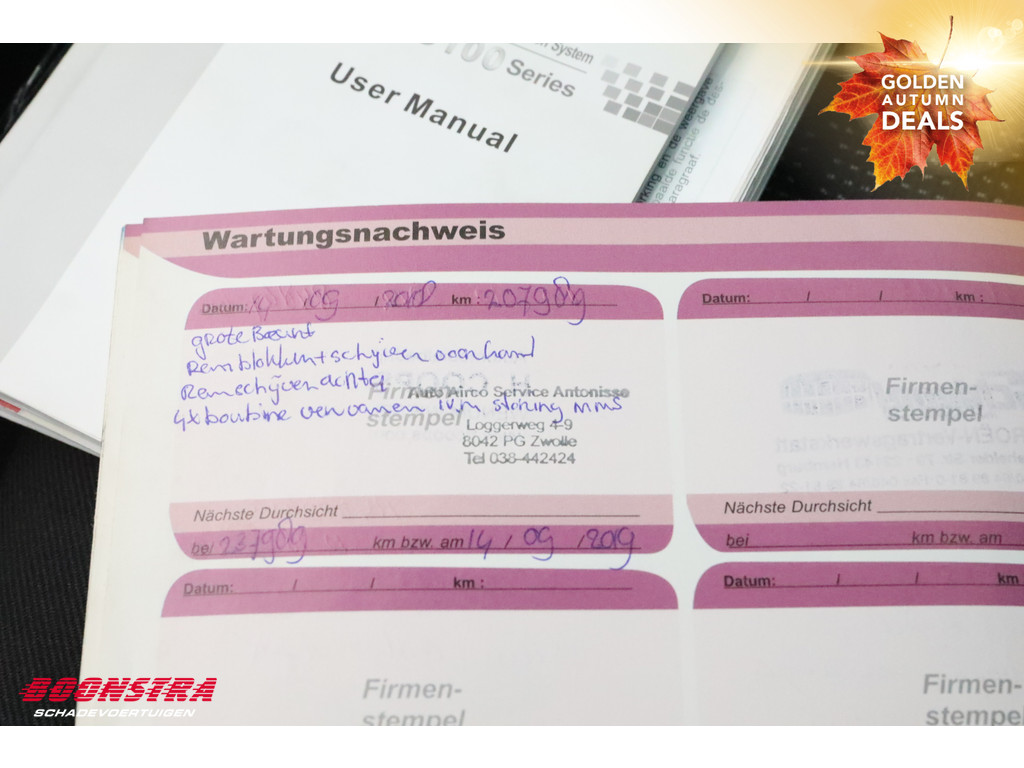 GOLDEN
AUTUMN
DEALS
System
100 Series
User Manual
Wartungsnachweis
Datum: 14 / 09 / 2018 km : 207989
grote Beurt
Remblokken + schijven voorhand
Remschijven achter
4x boubine vervangen i.v.m storing mms
Auto Airco Service Antonisse
Firmen-
stempel
Loggerweg 4-9
8042 PG Zwolle
Tel 038-442424
Nächste Durchsicht
bei 237989 km bzw. am 14 / 09 / 2019
Datum: / / km :
Firmen-
stempel
Nächste Durchsicht
bei km bzw. am
Datum: / / km :
Firmen-
stempel
Datum: / / km
Firmen-
stempel
BOONSTRA
SCHADEVOERTUIGEN